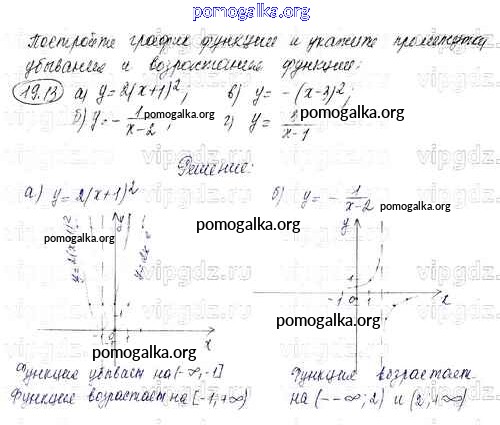 pomogalka.org
Постройте график функции и укажите промежутки
убывания и возрастания функции:
19.13 а) y = 2(x+1)², в) y = -(x-3)²;
б) y = - 1/(x-2), г) y = /(x-1)
pomogalka.org
Решение:
а) y = 2(x+1)²
б) y = - 1/(x-2)
pomogalka.org
pomogalka.org
pomogalka.org
y
y
pomogalka.org
1
-1 0 1 x
pomogalka.org
-1 0 1 x
pomogalka.org
Функция убывает на (-∞,-1]
Функция возрастает на [-1,+∞)
Функция возрастает
на (-∞; 2) и (2;+∞)
pomogalka.org
pomogalka.org